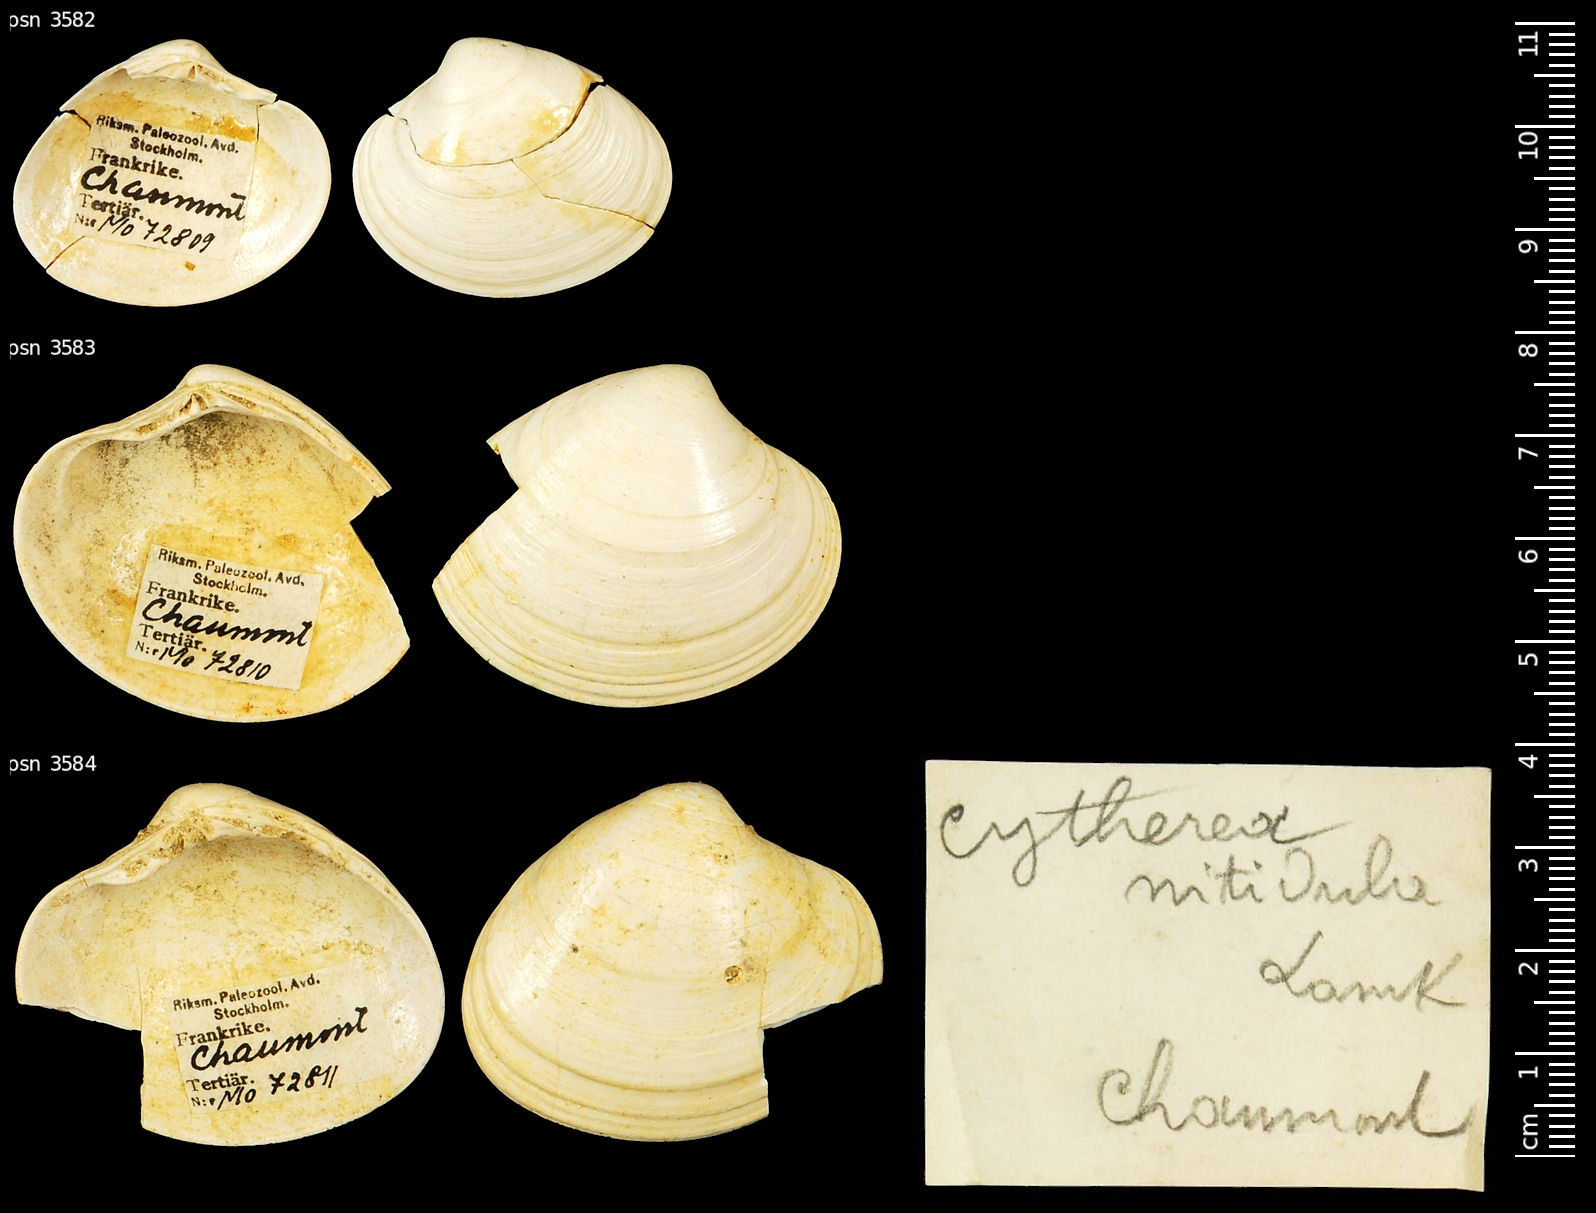 psn 3582
Riksm. Paleozool. Avd.
Stockholm.
Frankrike.
Chaumont
Tertiär.
N:r Mo 72809
psn 3583
Riksm. Paleozool. Avd.
Stockholm.
Frankrike.
Chaumont
Tertiär.
N:r Mo 72810
psn 3584
Riksm. Paleozool. Avd.
Stockholm.
Frankrike.
Chaumont
Tertiär.
N:r Mo 72811
Cytherea
nitidula
Lamk
Chaumont
11
10
9
8
7
6
5
4
3
2
1
cm